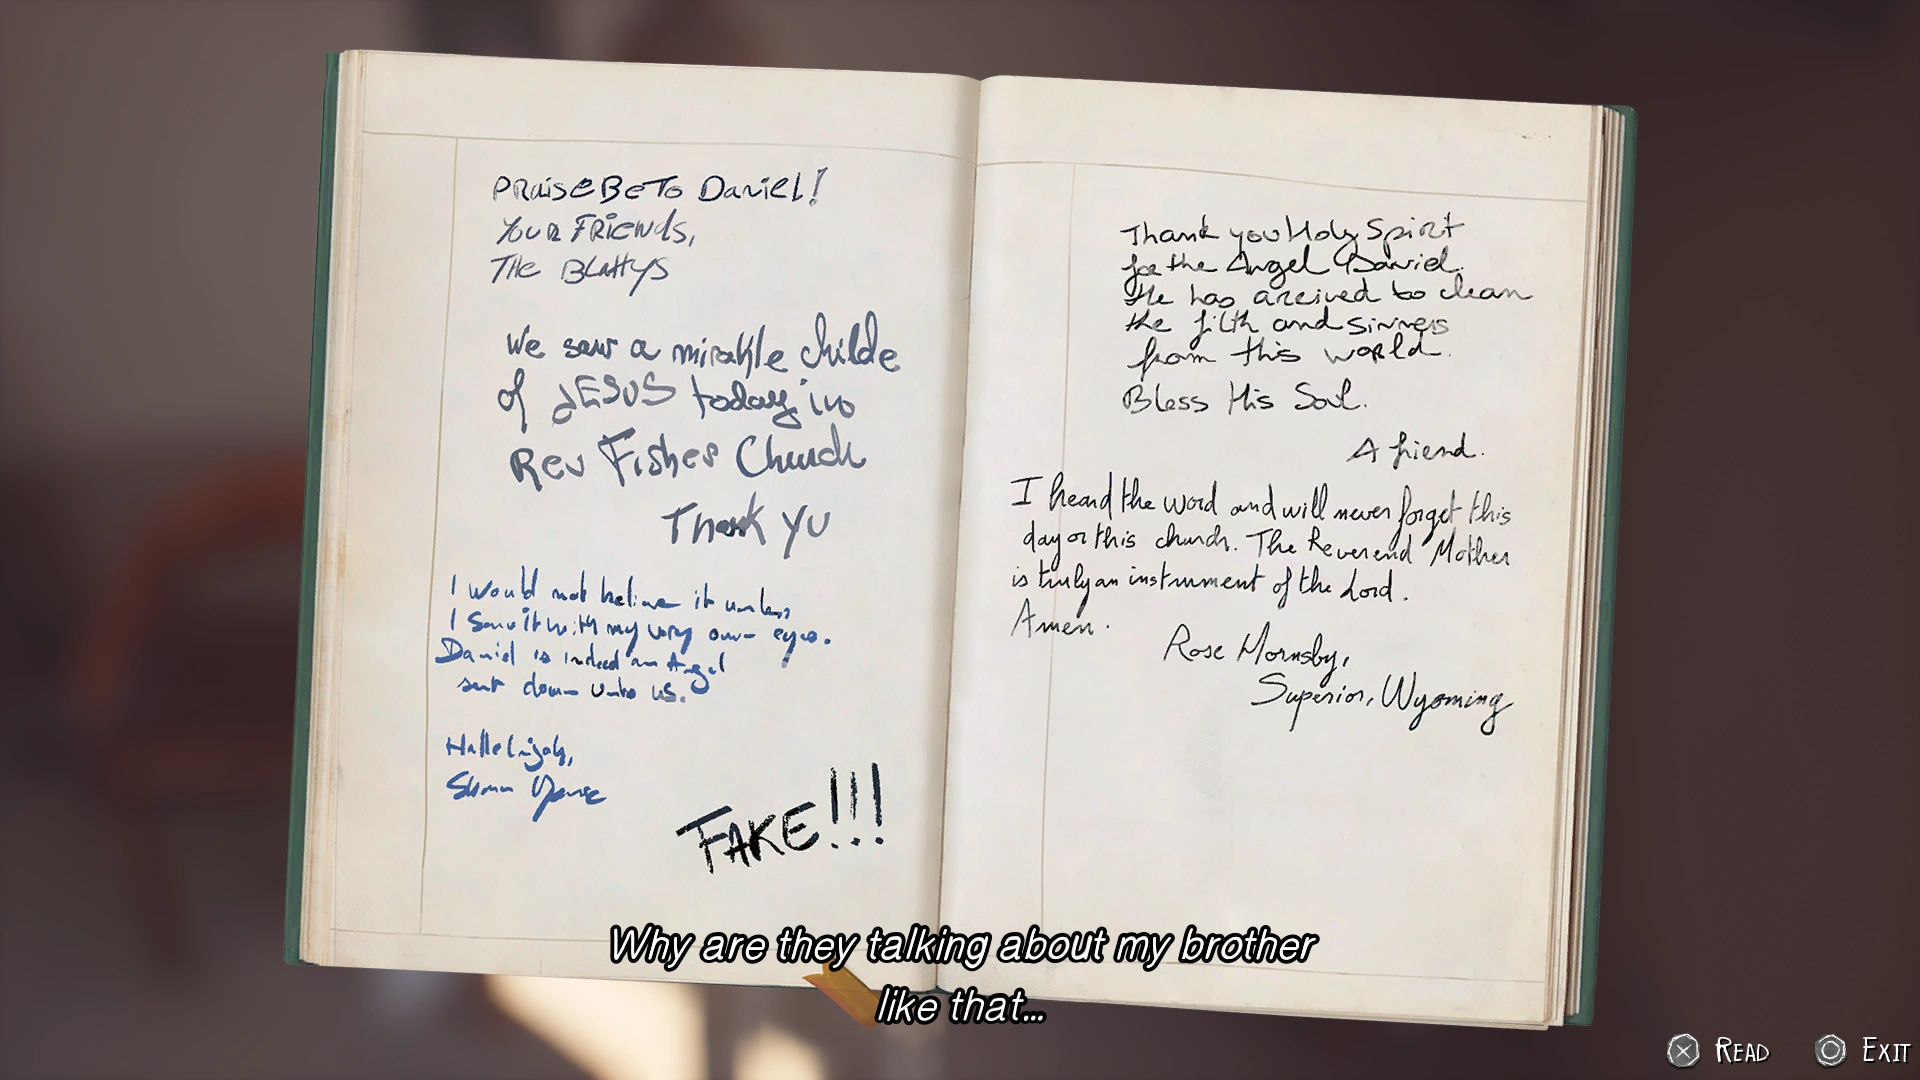 PRaiseBeTo Daniel!
YouR FRiends,
THe BLattys
We saw a mirakle childe
of JESUS today in
Rev Fisher Church
Thank YU
I would not believe it unless
I saw it with my very own eyes.
Daniel is indeed an Angel
sent down unto us.
Hallelujah,
FAKE!!!
Thank you Holy Spirit
for the Angel Daniel.
He has arrived to clean
the filth and sinners
from this world.
Bless His Soul.
A friend.
I heard the word and will never forget this
day or this church. The Reverend Mother
is truly an instrument of the Lord.
Amen.
Rose Hornsby,
Superior, Wyoming
Why are they talking about my brother
like that...
READ
EXIT